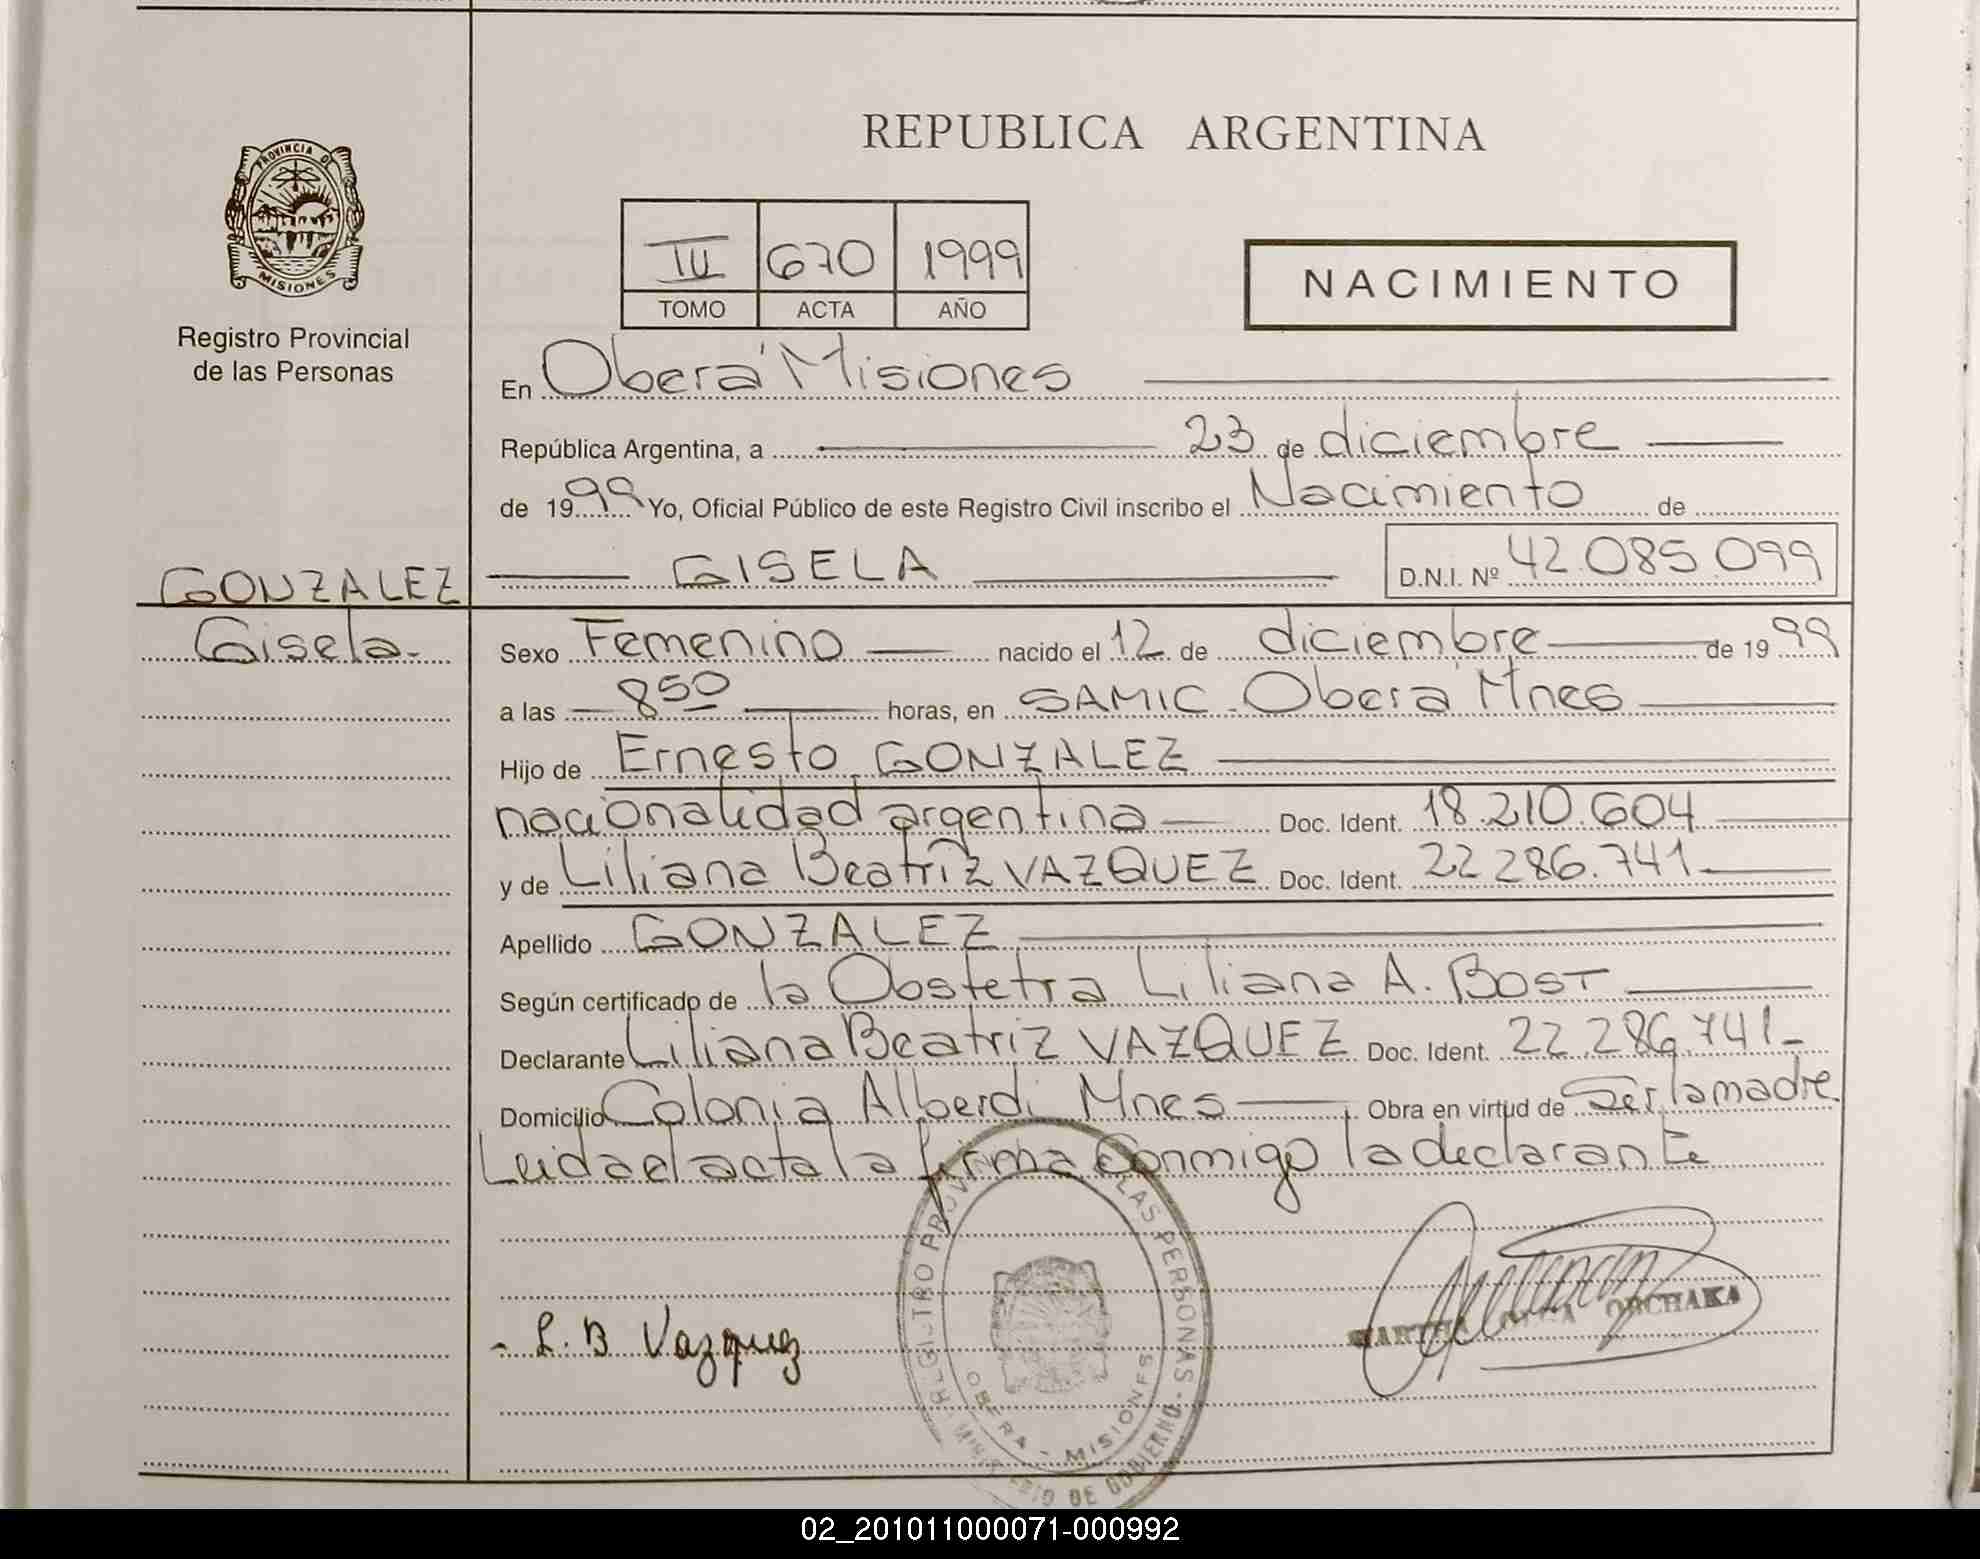 REPUBLICA ARGENTINA
PROVINCIA DE
MISIONES
Registro Provincial
de las Personas
III 670 1999
TOMO ACTA AÑO
NACIMIENTO
En Oberá Misiones
República Argentina, a 23 de diciembre
de 1999 Yo, Oficial Público de este Registro Civil inscribo el Nacimiento de
GISELA D.N.I. Nº 42.085.099
GONZALEZ
Gisela.
Sexo Femenino nacido el 12 de diciembre de 1999
a las 8 50 horas, en SAMIC. Oberá Mnes
Hijo de Ernesto GONZALEZ
nacionalidad argentina Doc. Ident. 18.210.604
y de Liliana Beatriz VAZQUEZ Doc. Ident. 22 286.741
Apellido GONZALEZ
Según certificado de la Obstetra Liliana A. BOST
Declarante Liliana Beatriz VAZQUEZ Doc. Ident. 22.286.741-
Domicilio Colonia Alberdi Mnes Obra en virtud de Ser la madre
Leida el acta la firma conmigo la declarante
- L. B Vazquez
REGISTRO PROVINCIAL LAS PERSONAS
OBERA - MISIONES
DE GOBIERNO
ORCHAKA
02_201011000071-000992